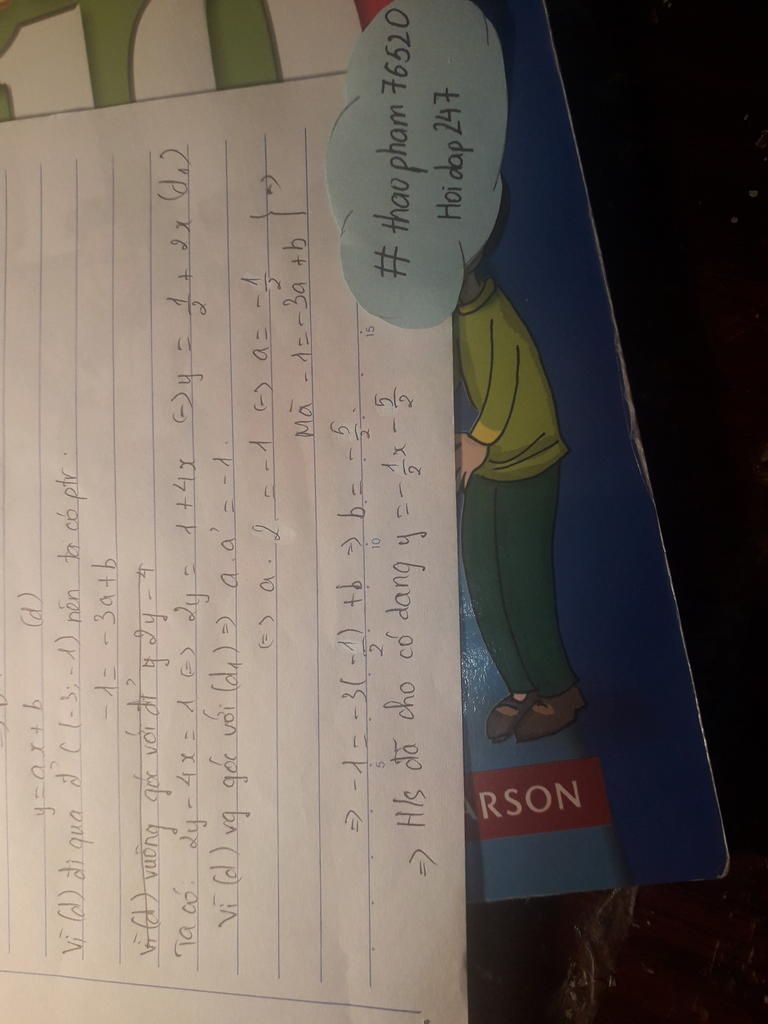 10
y = ax + b (d)
Vì (d) đi qua đ' C (-3; -1) nên ta có ptr:
-1 = -3a + b
Vì (d) vuông góc với đ' y 2y - 4
Ta có: 2y - 4x = 1 (=) 2y = 1 + 4x (=) y = 1/2 + 2x (d1)
Vì (d) vg góc với (d1) => a. a' = -1.
(=) a. 2 = -1 (=) a = -1/2
Mà -1 = -3a + b } =>
=> -1 = -3(-1/2) + b => b = -5/2.
=> H/s đã cho có dạng y = -1/2x - 5/2
5 10 15
# thaopham76520
Hoidap247
ARSON